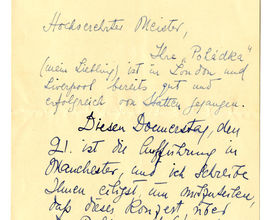 Hochverehrter Meister,
Ihre „Poládka"
(mein Liebling) ist in London und
Liverpool bereits gut und
erfolgreich von Statten gegangen.
Diesen Donnerstag, den
21. ist die Aufführung in
Manchester, und ich schreibe
Ihnen eiligst, um mitzuteilen,
daß dieses Konzert, über